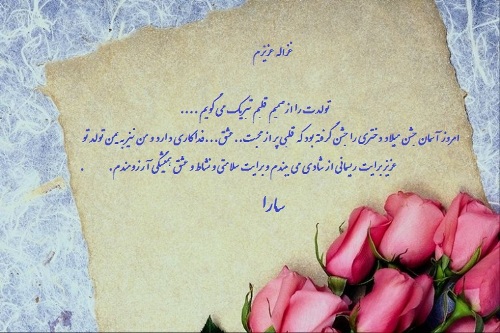 غزاله عزیزم
تولدت را از صمیم قلبم تبریک می گویم ....
امروز آسمان جشن میلاد دختری را جشن گرفته بود که قلبی پر از محبت.. عشق... فداکاری دارد و من نیز به یمن تولد تو
عزیز برایت ریسمانی از شادی می بندم و برایت سلامتی و نشاط و عشق همیشگی آرزومندم. .
سارا